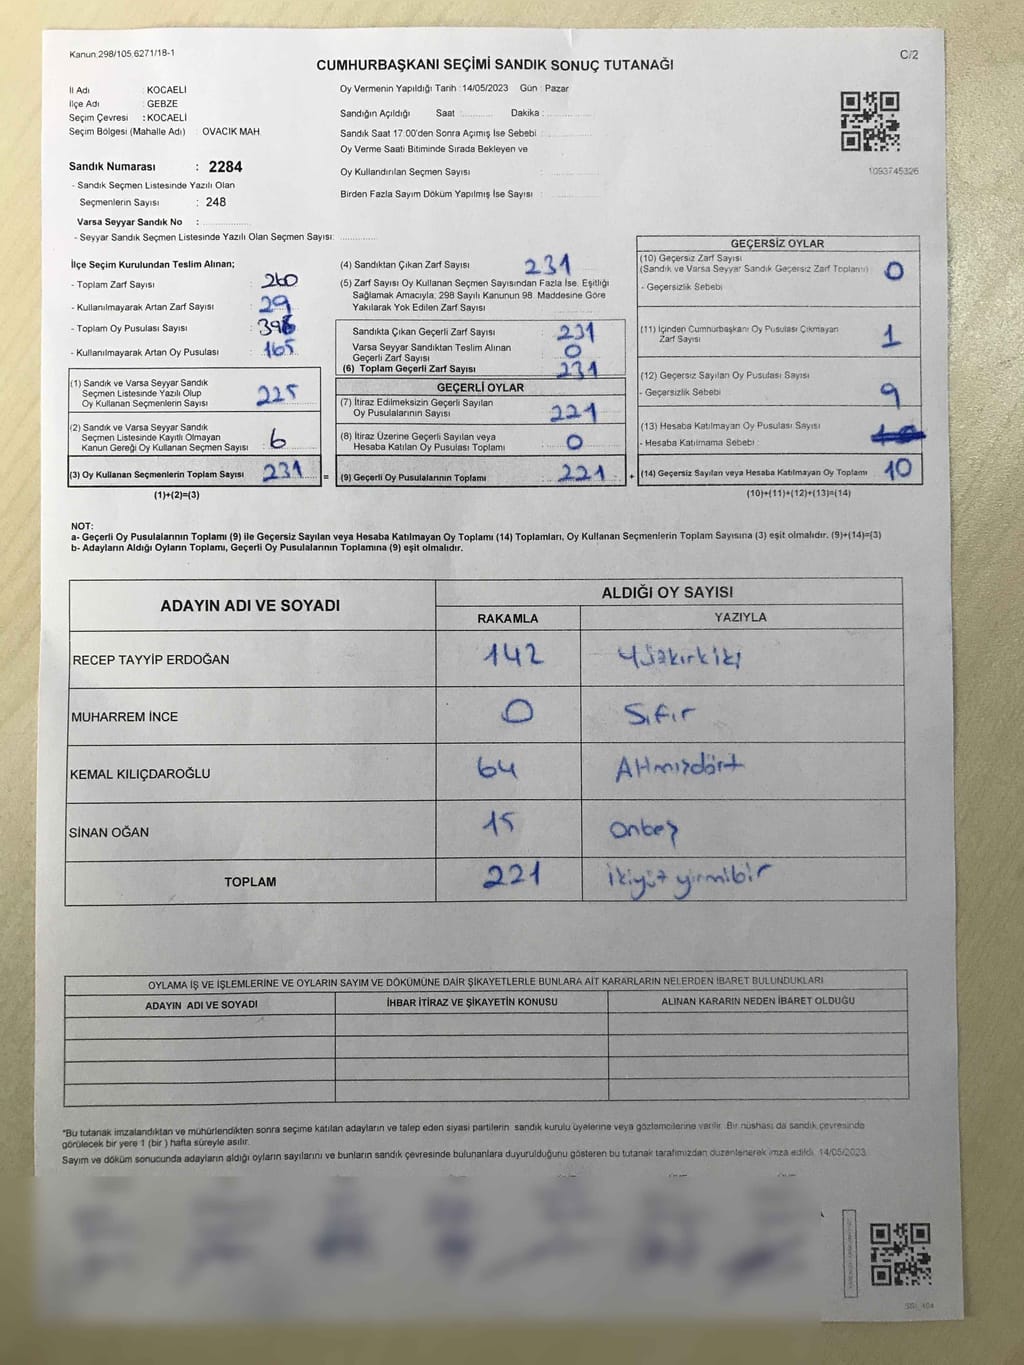 Kanun 298/105,6271/18-1
C/2
CUMHURBAŞKANI SEÇİMİ SANDIK SONUÇ TUTANAĞI
İl Adı : KOCAELİ
İlçe Adı : GEBZE
Seçim Çevresi : KOCAELİ
Seçim Bölgesi (Mahalle Adı) : OVACIK MAH.
Sandık Numarası : 2284
- Sandık Seçmen Listesinde Yazılı Olan
Seçmenlerin Sayısı : 248
Varsa Seyyar Sandık No :
- Seyyar Sandık Seçmen Listesinde Yazılı Olan Seçmen Sayısı:
Oy Vermenin Yapıldığı Tarih :14/05/2023 Gün : Pazar
Sandığın Açıldığı Saat Dakika :
Sandık Saat 17:00'den Sonra Açımış İse Sebebi :
Oy Verme Saati Bitiminde Sırada Bekleyen ve
Oy Kullandırılan Seçmen Sayısı :
Birden Fazla Sayım Döküm Yapılmış İse Sayısı :
1093745326
İlçe Seçim Kurulundan Teslim Alınan;
- Toplam Zarf Sayısı : 260
- Kullanılmayarak Artan Zarf Sayısı : 29
- Toplam Oy Pusulası Sayısı :
- Kullanılmayarak Artan Oy Pusulası : 165
(1) Sandık ve Varsa Seyyar Sandık
Seçmen Listesinde Yazılı Olup
Oy Kullanan Seçmenlerin Sayısı : 225
(2) Sandık ve Varsa Seyyar Sandık
Seçmen Listesinde Kayıtlı Olmayan
Kanun Gereği Oy Kullanan Seçmen Sayısı : 6
(3) Oy Kullanan Seçmenlerin Toplam Sayısı : 231 =
(1)+(2)=(3)
(4) Sandıktan Çıkan Zarf Sayısı : 231
(5) Zarf Sayısı Oy Kullanan Seçmen Sayısından Fazla İse, Eşitliği
Sağlamak Amacıyla, 298 Sayılı Kanunun 98. Maddesine Göre
Yakılarak Yok Edilen Zarf Sayısı :
Sandıkta Çıkan Geçerli Zarf Sayısı : 231
Varsa Seyyar Sandıktan Teslim Alınan
Geçerli Zarf Sayısı : 0
(6) Toplam Geçerli Zarf Sayısı : 231
GEÇERLİ OYLAR
(7) İtiraz Edilmeksizin Geçerli Sayılan
Oy Pusulalarının Sayısı : 221
(8) İtiraz Üzerine Geçerli Sayılan veya
Hesaba Katılan Oy Pusulası Toplamı : 0
(9) Geçerli Oy Pusulalarının Toplamı : 221 +
GEÇERSİZ OYLAR
(10) Geçersiz Zarf Sayısı
(Sandık ve Varsa Seyyar Sandık Geçersiz Zarf Toplamı) 0
- Geçersizlik Sebebi
(11) İçinden Cumhurbaşkanı Oy Pusulası Çıkmayan
Zarf Sayısı 1
(12) Geçersiz Sayılan Oy Pusulası Sayısı
- Geçersizlik Sebebi 9
(13) Hesaba Katılmayan Oy Pusulası Sayısı
- Hesaba Katılmama Sebebi :
(14) Geçersiz Sayılan veya Hesaba Katılmayan Oy Toplamı 10
(10)+(11)+(12)+(13)=(14)
NOT:
a- Geçerli Oy Pusulalarının Toplamı (9) ile Geçersiz Sayılan veya Hesaba Katılmayan Oy Toplamı (14) Toplamları, Oy Kullanan Seçmenlerin Toplam Sayısına (3) eşit olmalıdır. (9)+(14)=(3)
b- Adayların Aldığı Oyların Toplamı, Geçerli Oy Pusulalarının Toplamına (9) eşit olmalıdır.
ADAYIN ADI VE SOYADI
ALDIĞI OY SAYISI
RAKAMLA YAZIYLA
RECEP TAYYİP ERDOĞAN 142 Yüzkırkiki
MUHARREM İNCE 0 Sıfır
KEMAL KILIÇDAROĞLU 64 Altmışdört
SİNAN OĞAN 15 onbeş
TOPLAM 221 ikiyüz yirmibir
OYLAMA İŞ VE İŞLEMLERİNE VE OYLARIN SAYIM VE DÖKÜMÜNE DAİR ŞİKAYETLERLE BUNLARA AİT KARARLARIN NELERDEN İBARET BULUNDUKLARI
ADAYIN ADI VE SOYADI İHBAR İTİRAZ VE ŞİKAYETİN KONUSU ALINAN KARARIN NEDEN İBARET OLDUĞU
*Bu tutanak imzalandıktan ve mühürlendikten sonra seçime katılan adayların ve talep eden siyasi partilerin sandık kurulu üyelerine veya gözlemcilerine verilir. Bir nüshası da sandık çevresinde
görülecek bir yere 1 (bir ) hafta süreyle asılır.
Sayım ve döküm sonucunda adayların aldığı oyların sayılarını ve bunların sandık çevresinde bulunanlara duyurulduğunu gösteren bu tutanak tarafımızdan düzenlenerek imza edildi. 14/05/2023